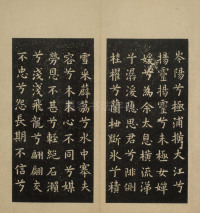 涔陽兮極浦橫大江兮
揚靈揚靈兮未極女嬋
媛兮為余太息橫流涕
兮潺湲隱思君兮陫側
桂櫂兮蘭枻斲冰兮積
雪采薜荔兮水中搴芙
容兮木末心不同兮媒
勞恩不甚兮輕絕石瀨
兮淺淺飛龍兮翩翩交
不忠兮怨長期不信兮